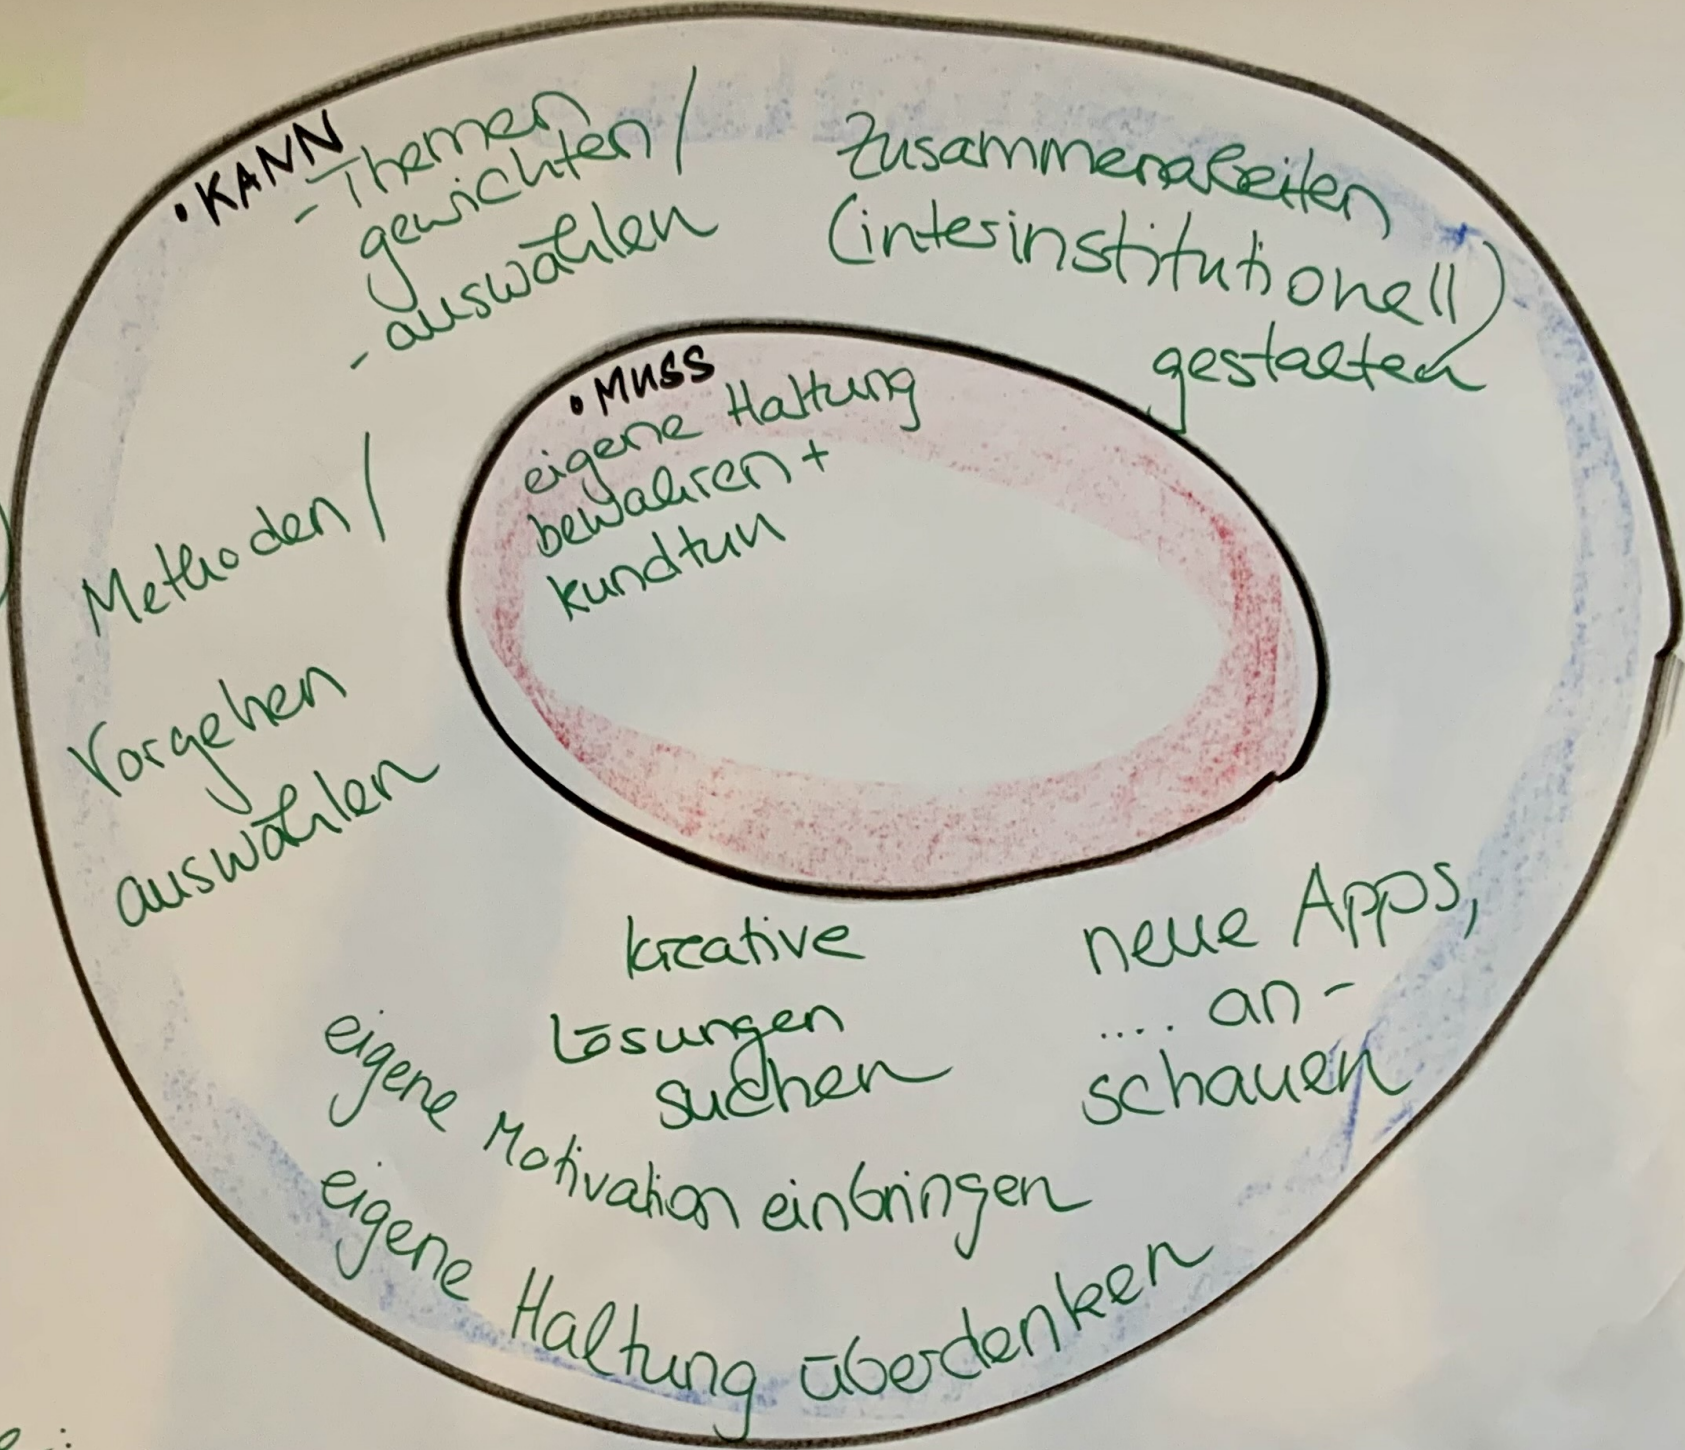 • KANN
- Themen
gewichten /
- auswählen
Zusammenarbeiten
(interinstitutionell)
gestalten
• MUSS
eigene Haltung
bewahren +
kundtun
Methoden /
Vorgehen
auswählen
kreative
Lösungen
suchen
neue Apps,
.... an-
schauen
eigene Motivation einbringen
eigene Haltung überdenken